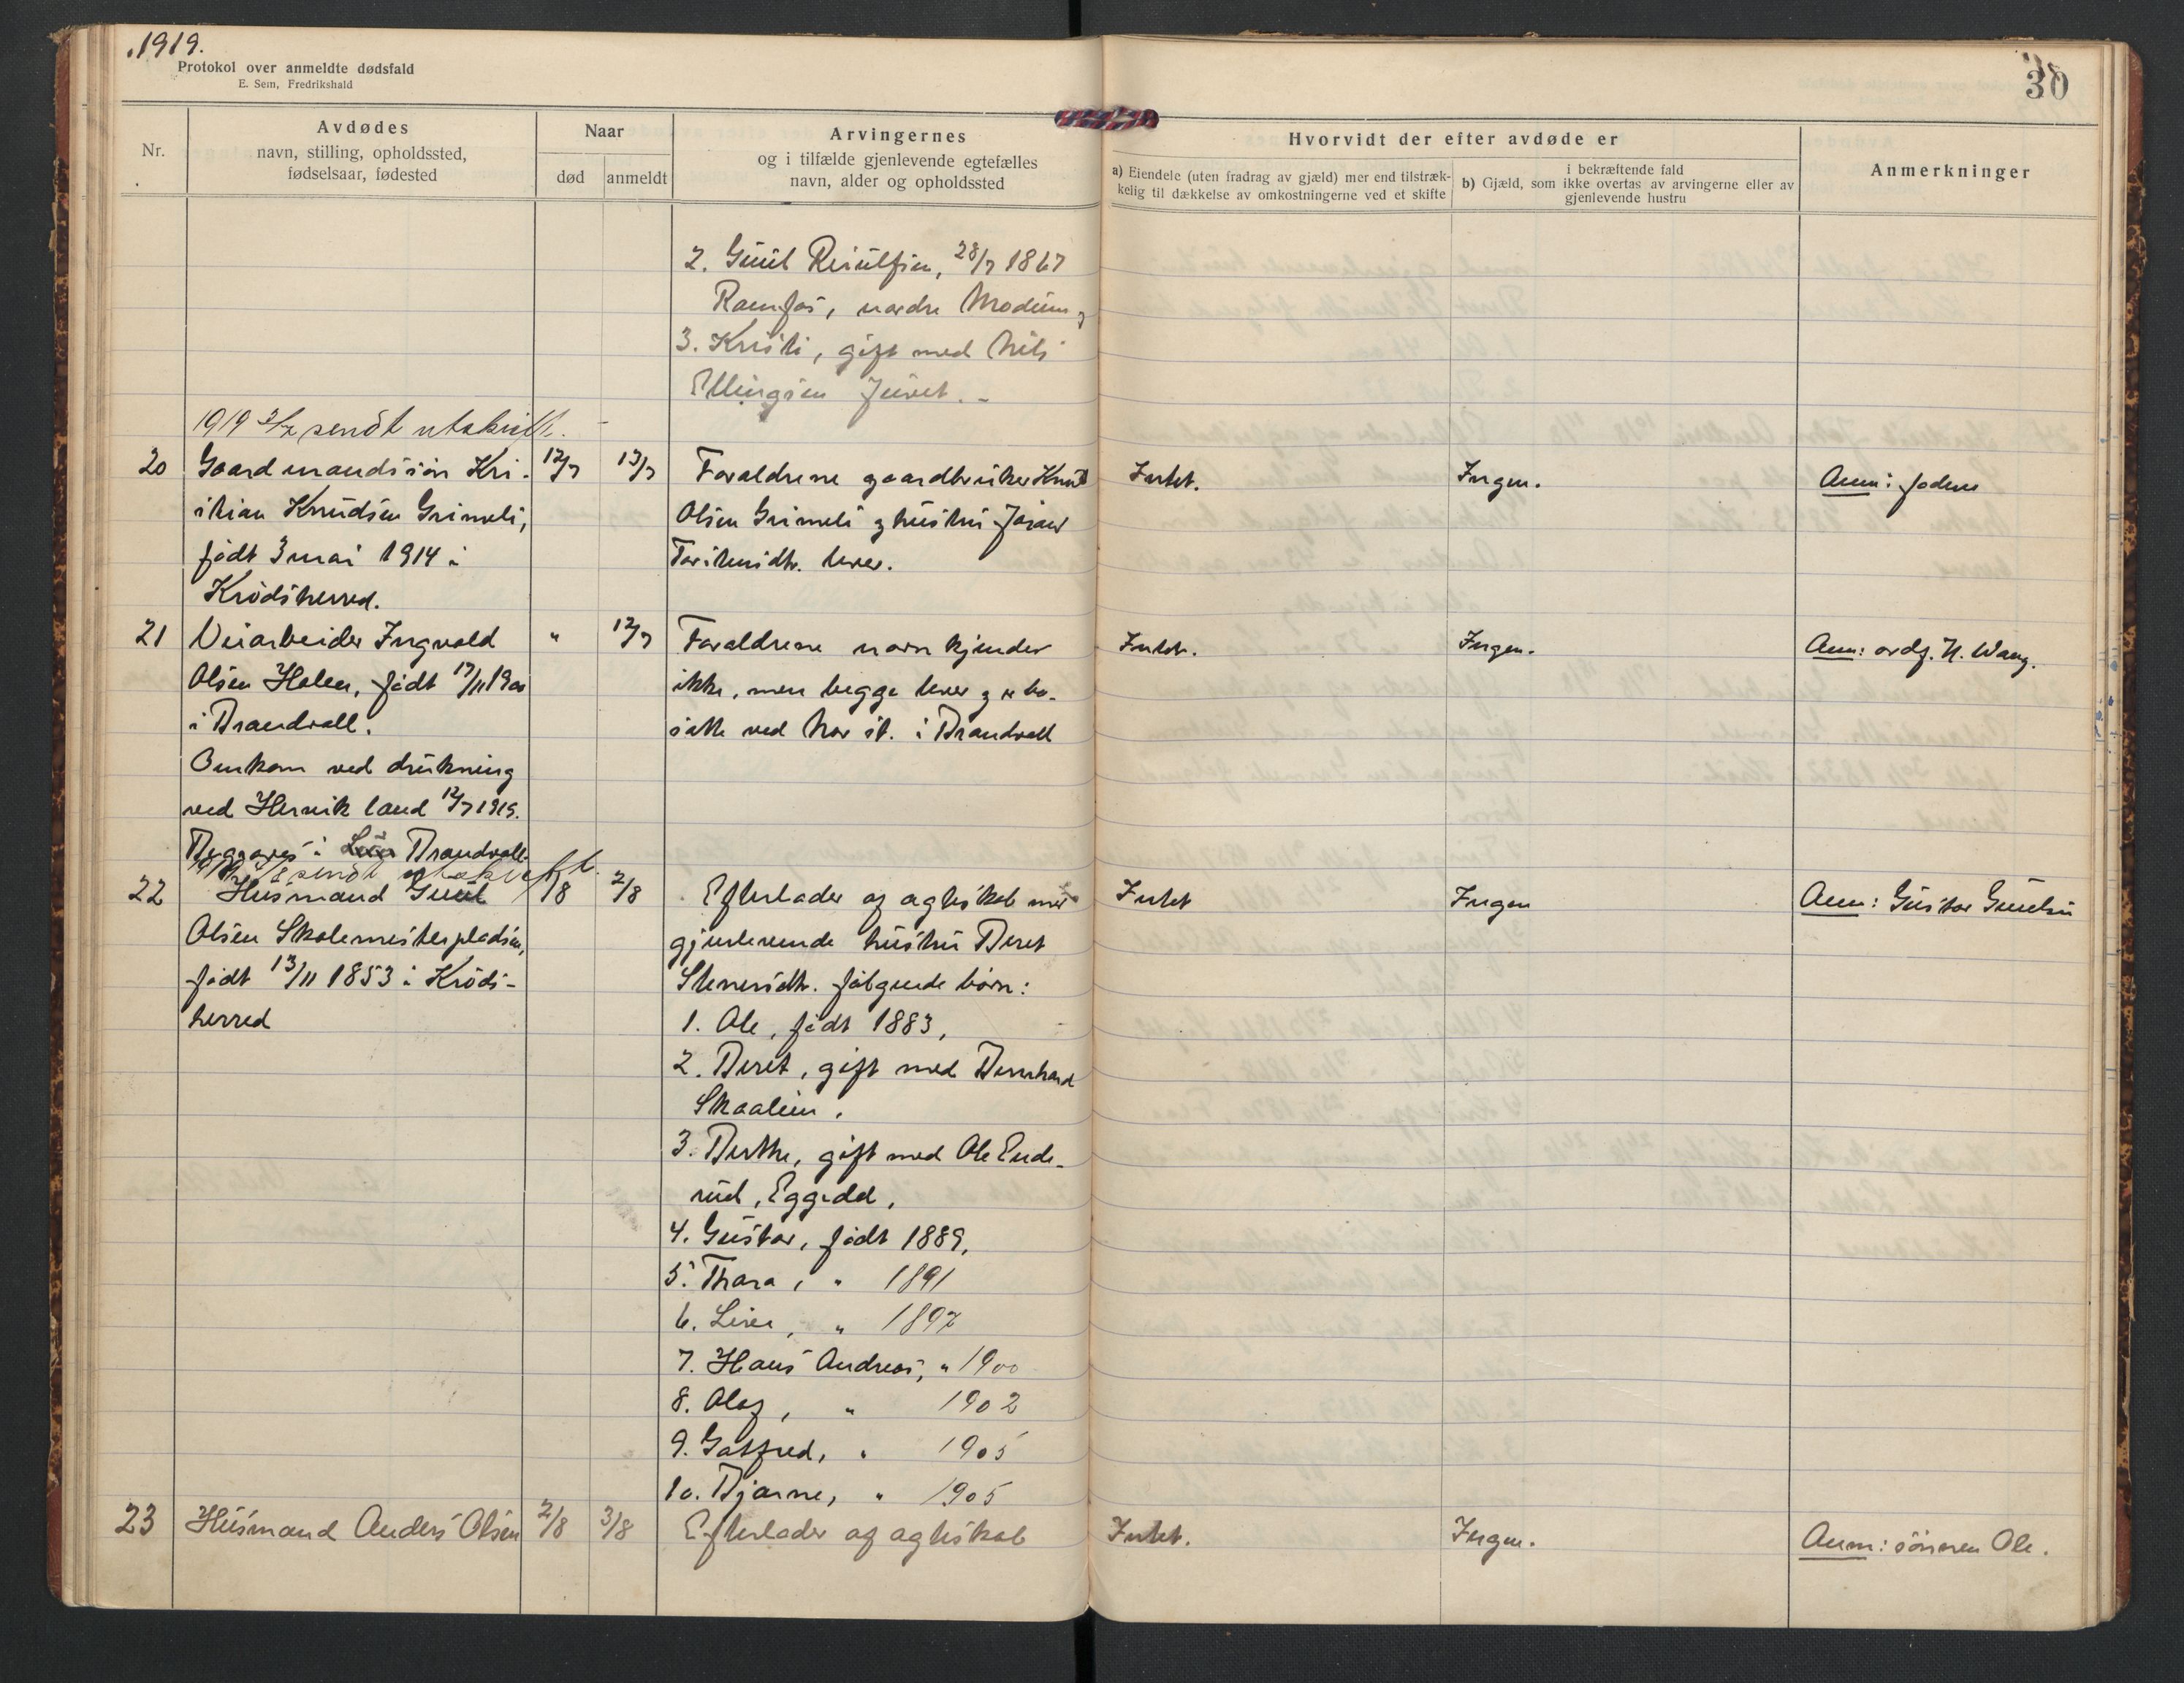 1919.
Protokol over anmeldte dødsfald
E. Sem, Fredrikshald
30
Nr.
Avdødes
navn, stilling, opholdssted,
fødselsaar, fødested
Naar
død
anmeldt
Arvingernes
og i tilfælde gjenlevende egtefælles
navn, alder og opholdssted
Hvorvidt der efter avdøde er
a) Eiendele (uten fradrag av gjæld) mer end tilstræk-
kelig til dækkelse av omkostningerne ved et skifte
i bekræftende fald
b) Gjæld, som ikke overtas av arvingerne eller av
gjenlevende hustru
Anmerkninger
2. Guul 28/7 1867
Ramfos, nordre Modum,
3. Kristi, gift med Nils
Ellingsen Juvet. -
1919 sendt utskrift.
20
Gaardmandssøn Kri-
stian Knudsen Grimeli,
født 3 mai 1914 i
Krødsherred.
12/7
13/7
Forældrene gaardbruker Knut
Olsen Grimeli g hustru Jøran
Torstensdtr. lever.
Intet.
Ingen.
Anm: faderen
21
Veiarbeider Ingvald
Olsen Holen, født 17/11 1900
i Brandvall.
Omkom ved drukning
ved Hervik land 12/7 1919.
Begraves i Brandvall.
"
12/7
Forældrene navn kjender
ikke, men begge lever g er bo-
satte ved Nor st. i Brandvall
Intet.
Ingen.
Anm: ordf. H. Wang.
sendt utskrift.
22
Husmand Guul
Olsen Skolemesterpladsen,
født 13/11 1853 i Kröds-
herred
1/8
2/8
Efterlader af ægteskab med
gjenlevende hustru Beret
Stenersdtr. følgende børn:
1. Ole, født 1883,
2. Beret, gift med Bernhard
Skaalien.
3. Berthe, gift med Ole Ende-
rud, Eggedal,
4. Gustav, født 1889,
5. Thora, " 1891
6. Lina, " 1897
7. Hans Andreas, " 1900
8. Olaf, " 1902
9. Gotfred, " 1905
10. Bjarne, " 1905
Intet
Ingen
Anm: Gustav Guulsen
23
Husmand Anders Olsen
2/8
3/8
Efterlader af ægteskab
Intet.
Ingen.
Anm: sønnen Ole.